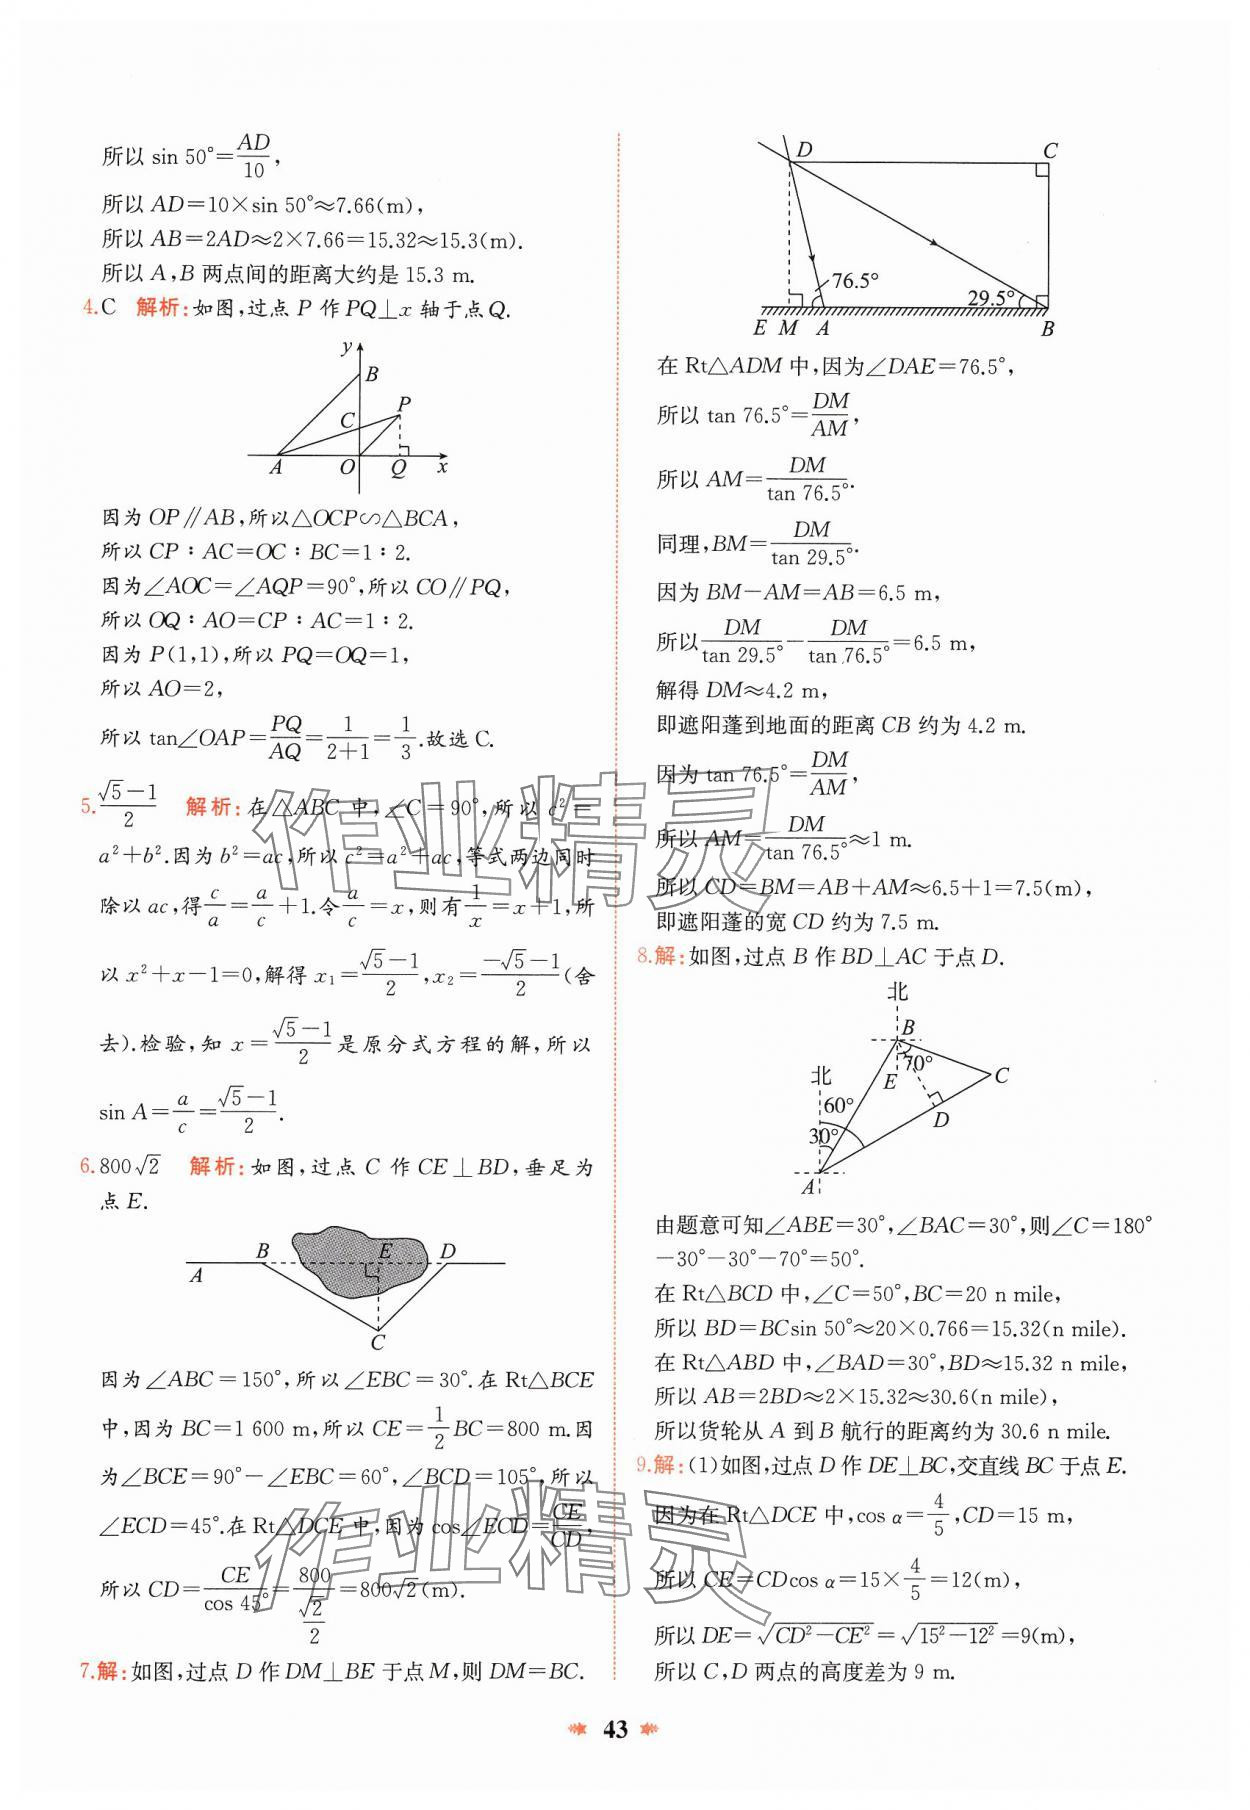 所以 sin 50°=AD/10,
所以 AD=10×sin 50°≈7.66(m),
所以 AB=2AD≈2×7.66=15.32≈15.3(m).
所以 A,B 两点间的距离大约是 15.3 m.
4.C 解析:如图,过点 P 作 PQ⊥x 轴于点 Q.
y
B
C
P
A
O
Q
x
因为 OP∥AB,所以△OCP∽△BCA,
所以 CP∶AC=OC∶BC=1∶2.
因为∠AOC=∠AQP=90°,所以 CO∥PQ,
所以 OQ∶AO=CP∶AC=1∶2.
因为 P(1,1),所以 PQ=OQ=1,
所以 AO=2,
所以 tan∠OAP=PQ/AQ=1/(2+1)=1/3.故选 C.
5.(√5-1)/2 解析:在△ABC 中,∠C=90°,所以 c²=
a²+b².因为 b²=ac,所以 c²=a²+ac,等式两边同时
除以 ac,得 c/a=a/c+1.令 a/c=x,则有 1/x=x+1,所
以 x²+x-1=0,解得 x₁=(√5-1)/2,x₂=(-√5-1)/2(舍
去).检验,知 x=(√5-1)/2 是原分式方程的解,所以
sin A=a/c=(√5-1)/2.
6.800√2 解析:如图,过点 C 作 CE⊥BD,垂足为
点 E.
A
B
E
D
C
因为∠ABC=150°,所以∠EBC=30°.在 Rt△BCE
中,因为 BC=1 600 m,所以 CE=1/2BC=800 m.因
为∠BCE=90°-∠EBC=60°,∠BCD=105°,所以
∠ECD=45°.在 Rt△DCE 中,因为 cos∠ECD=CE/CD,
所以 CD=CE/cos 45°=800/(√2/2)=800√2(m).
7.解:如图,过点 D 作 DM⊥BE 于点 M,则 DM=BC.
D
C
76.5°
29.5°
E M A
B
在 Rt△ADM 中,因为∠DAE=76.5°,
所以 tan 76.5°=DM/AM,
所以 AM=DM/tan 76.5°.
同理,BM=DM/tan 29.5°.
因为 BM-AM=AB=6.5 m,
所以 DM/tan 29.5°-DM/tan 76.5°=6.5 m,
解得 DM≈4.2 m,
即遮阳蓬到地面的距离 CB 约为 4.2 m.
因为 tan 76.5°=DM/AM,
所以 AM=DM/tan 76.5°≈1 m.
所以 CD=BM=AB+AM≈6.5+1=7.5(m),
即遮阳蓬的宽 CD 约为 7.5 m.
8.解:如图,过点 B 作 BD⊥AC 于点 D.
北
B
70°
E
C
北
60°
D
30°
A
由题意可知∠ABE=30°,∠BAC=30°,则∠C=180°
-30°-30°-70°=50°.
在 Rt△BCD 中,∠C=50°,BC=20 n mile,
所以 BD=BCsin 50°≈20×0.766=15.32(n mile).
在 Rt△ABD 中,∠BAD=30°,BD≈15.32 n mile,
所以 AB=2BD≈2×15.32≈30.6(n mile),
所以货轮从 A 到 B 航行的距离约为 30.6 n mile.
9.解:(1)如图,过点 D 作 DE⊥BC,交直线 BC 于点 E.
因为在 Rt△DCE 中,cos α=4/5,CD=15 m,
所以 CE=CDcos α=15×4/5=12(m),
所以 DE=√(CD²-CE²)=√(15²-12²)=9(m),
所以 C,D 两点的高度差为 9 m.
43
作业精灵
作业精灵